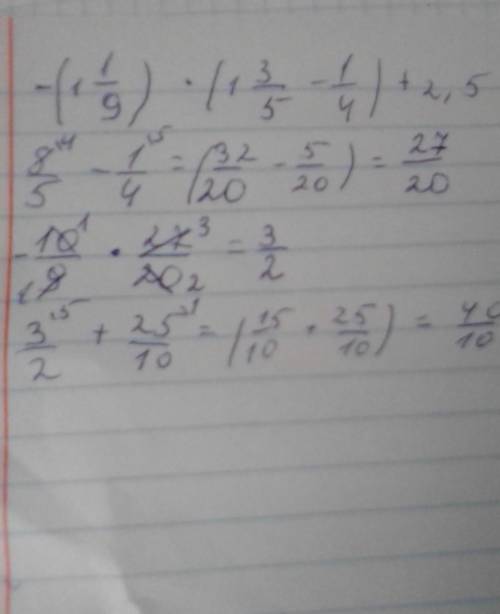 -(1 1/9) · (1 3/5 - 1/4) + 2,5
8/5 ·4 - 1/4 ·5 = (32/20 - 5/20) = 27/20
-10/9 1 1 · 27/20 3 2 = 3/2
3/2 ·5 + 25/10 ·1 = (15/10 + 25/10) = 40/10